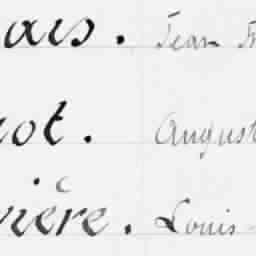 ais. Jean Fr
not. August
vière. Louis